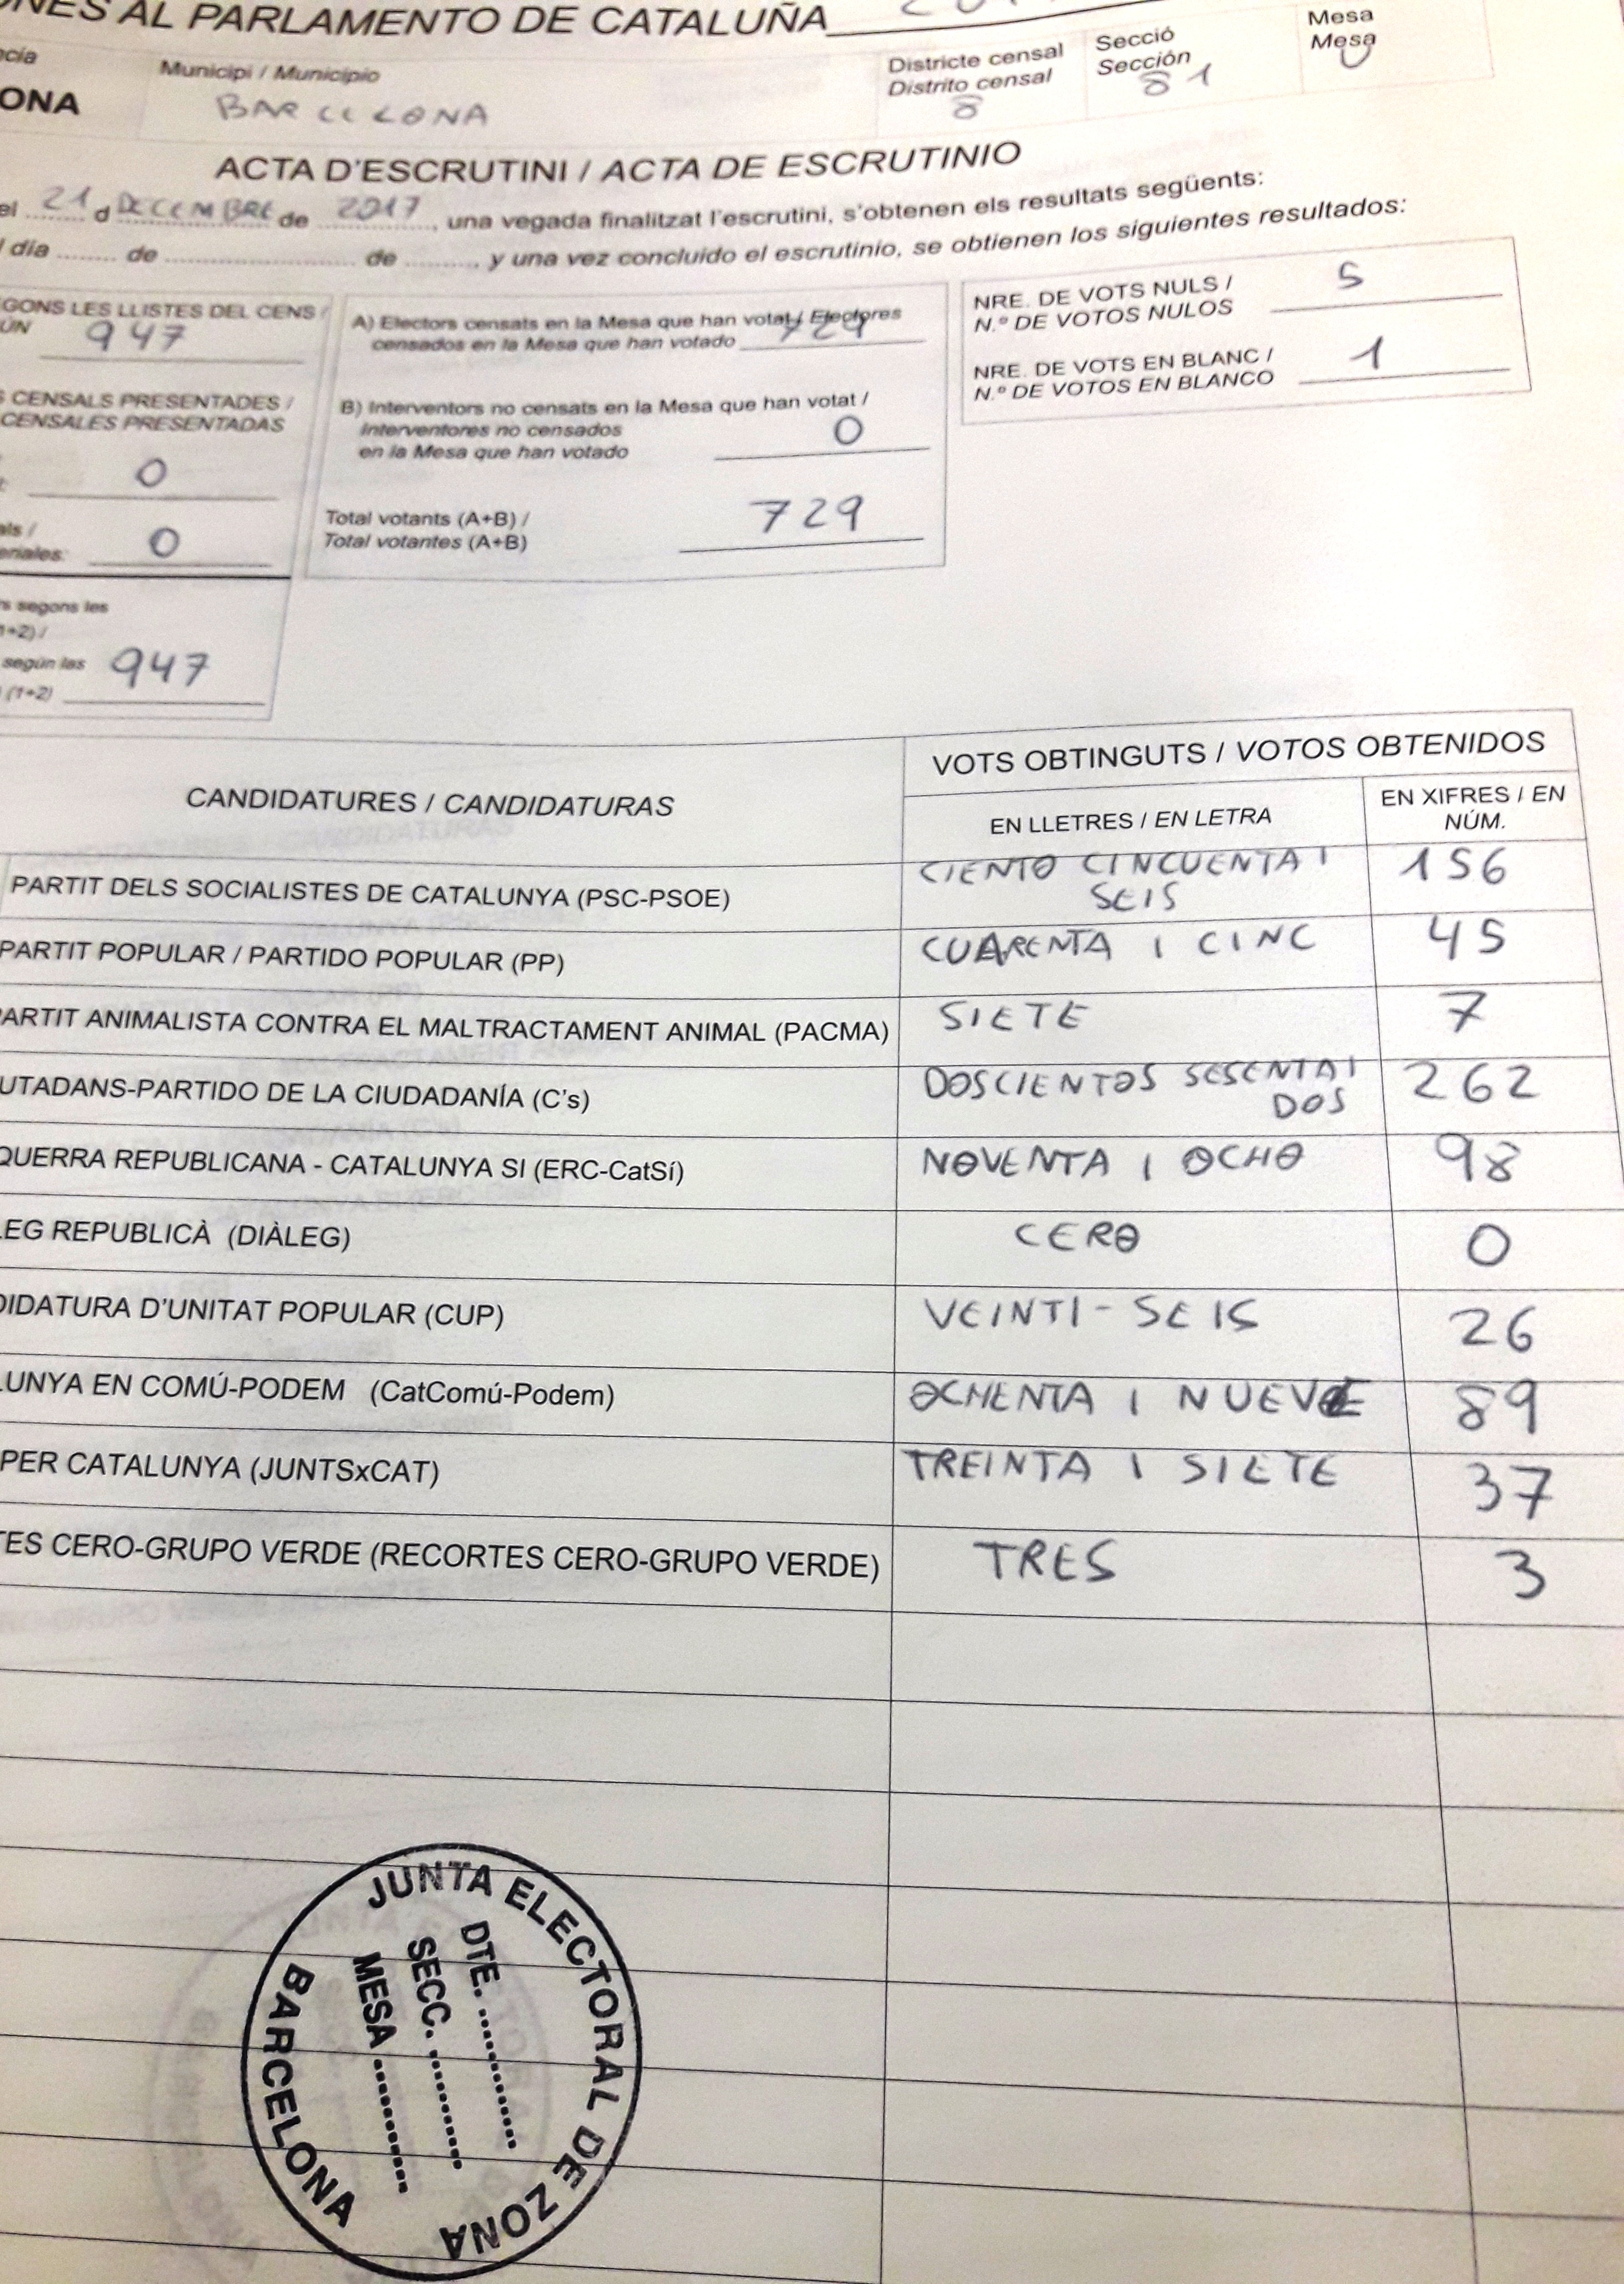 NES AL PARLAMENTO DE CATALUÑA
Municipi / Municipio
Districte censal
Distrito censal
Secció
Sección
Mesa
Mesa
ONA
BARCELONA
8
81
U
ACTA D'ESCRUTINI / ACTA DE ESCRUTINIO
el 21 d DECEMBRE de 2017, una vegada finalitzat l'escrutini, s'obtenen els resultats següents:
día ........ de ........................ de ........., y una vez concluido el escrutinio, se obtienen los siguientes resultados:
GONS LES LLISTES DEL CENS /
ÚN
947
CENSALS PRESENTADES /
CENSALES PRESENTADAS
0
als /
eriales:
0
s segons les
1+2) /
según las
(1+2)
947
A) Electors censats en la Mesa que han votat / Electores
censados en la Mesa que han votado
729
B) Interventors no censats en la Mesa que han votat /
Interventores no censados
en la Mesa que han votado
0
Total votants (A+B) /
Total votantes (A+B)
729
NRE. DE VOTS NULS /
N.º DE VOTOS NULOS
5
NRE. DE VOTS EN BLANC /
N.º DE VOTOS EN BLANCO
1
CANDIDATURES / CANDIDATURAS
VOTS OBTINGUTS / VOTOS OBTENIDOS
EN LLETRES / EN LETRA
EN XIFRES / EN
NÚM.
PARTIT DELS SOCIALISTES DE CATALUNYA (PSC-PSOE)
CIENTO CINCUENTA I
SEIS
156
PARTIT POPULAR / PARTIDO POPULAR (PP)
CUARENTA I CINC
45
PARTIT ANIMALISTA CONTRA EL MALTRACTAMENT ANIMAL (PACMA)
SIETE
7
UTADANS-PARTIDO DE LA CIUDADANÍA (C's)
DOSCIENTOS SESENTA I
DOS
262
QUERRA REPUBLICANA - CATALUNYA SI (ERC-CatSí)
NOVENTA I OCHO
98
LEG REPUBLICÀ (DIÀLEG)
CERO
0
DIDATURA D'UNITAT POPULAR (CUP)
VEINTI-SEIS
26
LUNYA EN COMÚ-PODEM (CatComú-Podem)
OCHENTA I NUEVE
89
PER CATALUNYA (JUNTSxCAT)
TREINTA I SIETE
37
TES CERO-GRUPO VERDE (RECORTES CERO-GRUPO VERDE)
TRES
3
JUNTA ELECTORAL DE ZONA
DTE. ............
SECC. ............
MESA ............
BARCELONA